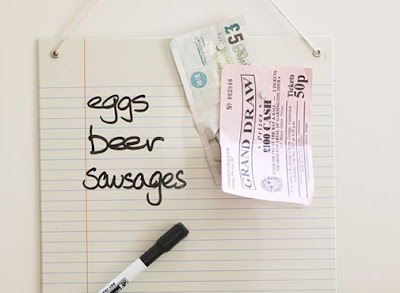 eggs
beer
sausages
£5
Nº 002846
GRAND DRAW
Prizes
£100 CASH
Tickets
50p